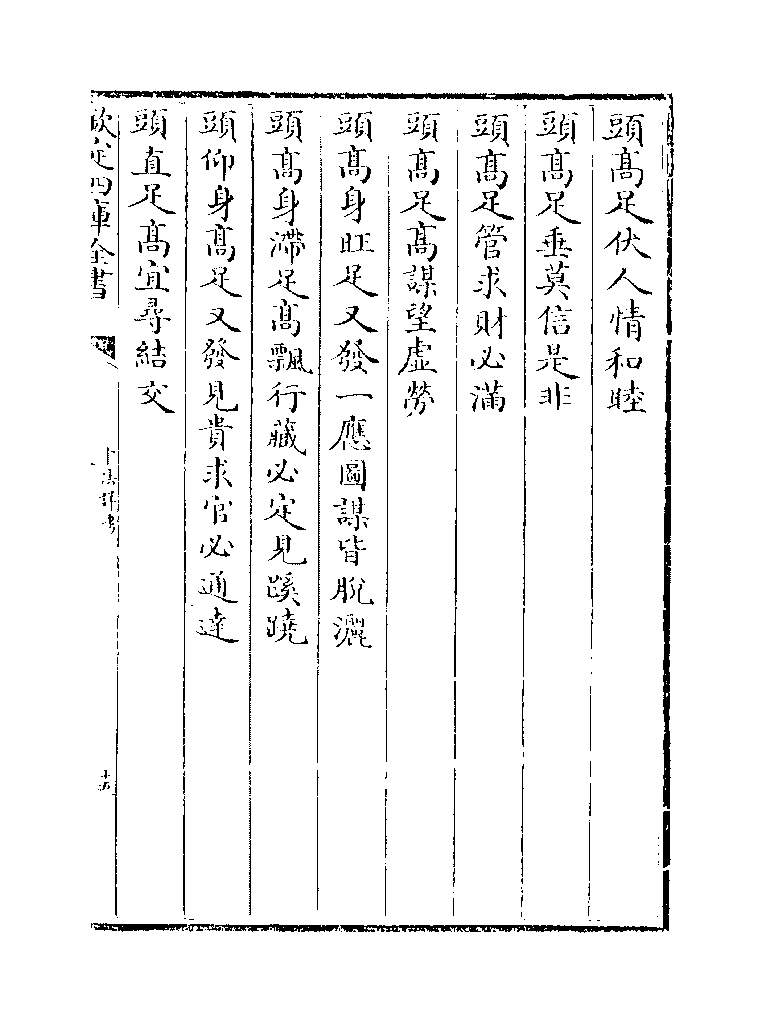 頭髙足伏人情和睦
頭髙足垂莫信是非
頭髙足管求財必滿
頭髙足髙謀望虛勞
頭髙身旺足又發一應圖謀皆脫灑
頭髙身滯足髙飄行藏必定見蹊蹺
頭仰身髙足又發見貴求官必通達
頭直足髙宜尋結交
欽定四庫全書
卜法詳考
十五